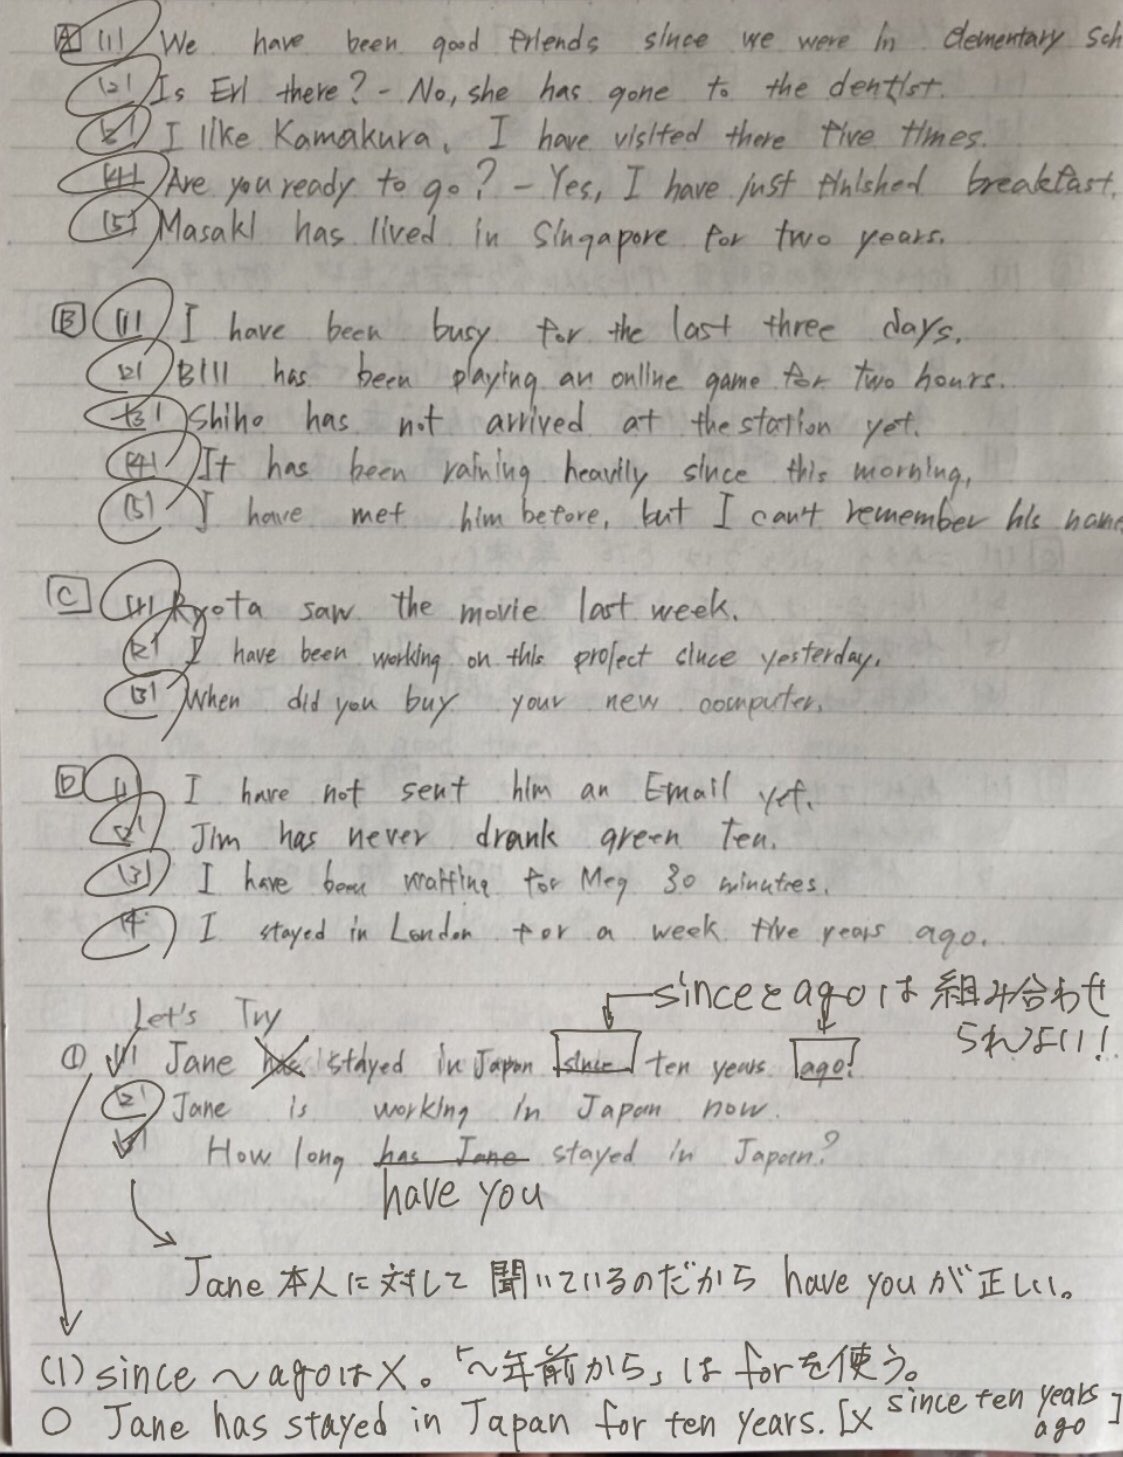 A (1) We have been good friends since we were in elementary sch
(2) Is Eri there? - No, she has gone to the dentist.
(3) I like Kamakura. I have visited there five times.
(4) Are you ready to go? - Yes, I have just finished breakfast.
(5) Masaki has lived in Singapore for two years.
B (1) I have been busy for the last three days.
(2) Bill has been playing an online game for two hours.
(3) Shiho has not arrived at the station yet.
(4) It has been raining heavily since this morning.
(5) I have met him before, but I can't remember his name
C (1) Ryota saw the movie last week.
(2) I have been working on this project since yesterday.
(3) When did you buy your new computer.
D (1) I have not sent him an Email yet.
(2) Jim has never drunk green Tea.
(3) I have been waiting for Meg 30 minutes.
(4) I stayed in London for a week five years ago.
sinceとagoは組み合わせ
られない!
Let's Try
① (1) Jane has stayed in Japan since ten years ago.
(2) Jane is working in Japan now.
(3) How long has Jane stayed in Japan?
have you
Jane本人に対して聞いているのだからhave youが正しい。
(1) since ～agoは×。「～年前から」はforを使う。
○ Jane has stayed in Japan for ten years. [× since ten years ago]